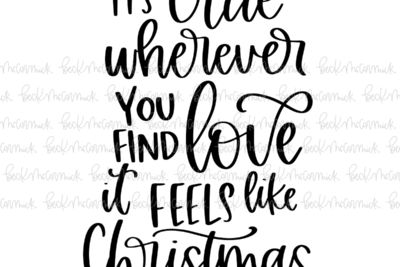 IT'S true
wherever
YOU
FIND love
it FEELS like
Christmas